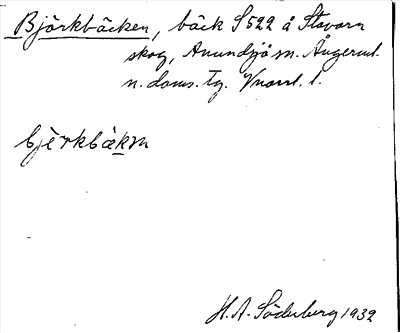 Björkbäcken, bäck S 522 å Stavarn
skog, Anundsjö sn. Ångerml.
n. doms. tg. Vnorrl. l.
bjèrkbækm
H.A. Söderberg 1932